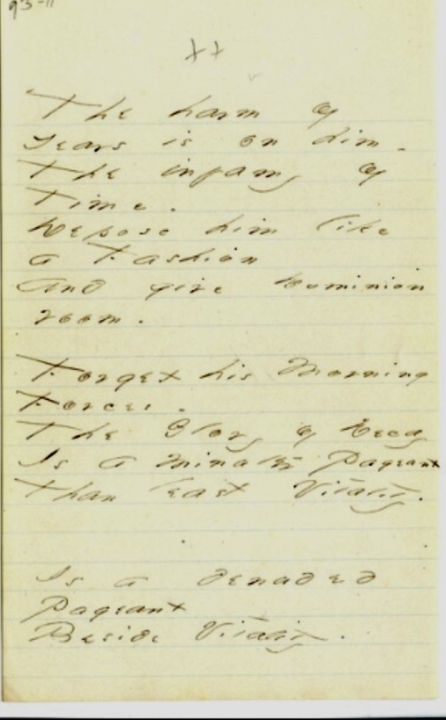 93-11
++
The harm of
Years is on him -
The infamy of
Time -
Depose him like
a Fashion
And give Dominion
room -
Forget his Morning
Forces -
The Glory of Decay
Is a minuter Pageant
Than least Vitality.
Is a denuded
Pageant
Beside Vitality -